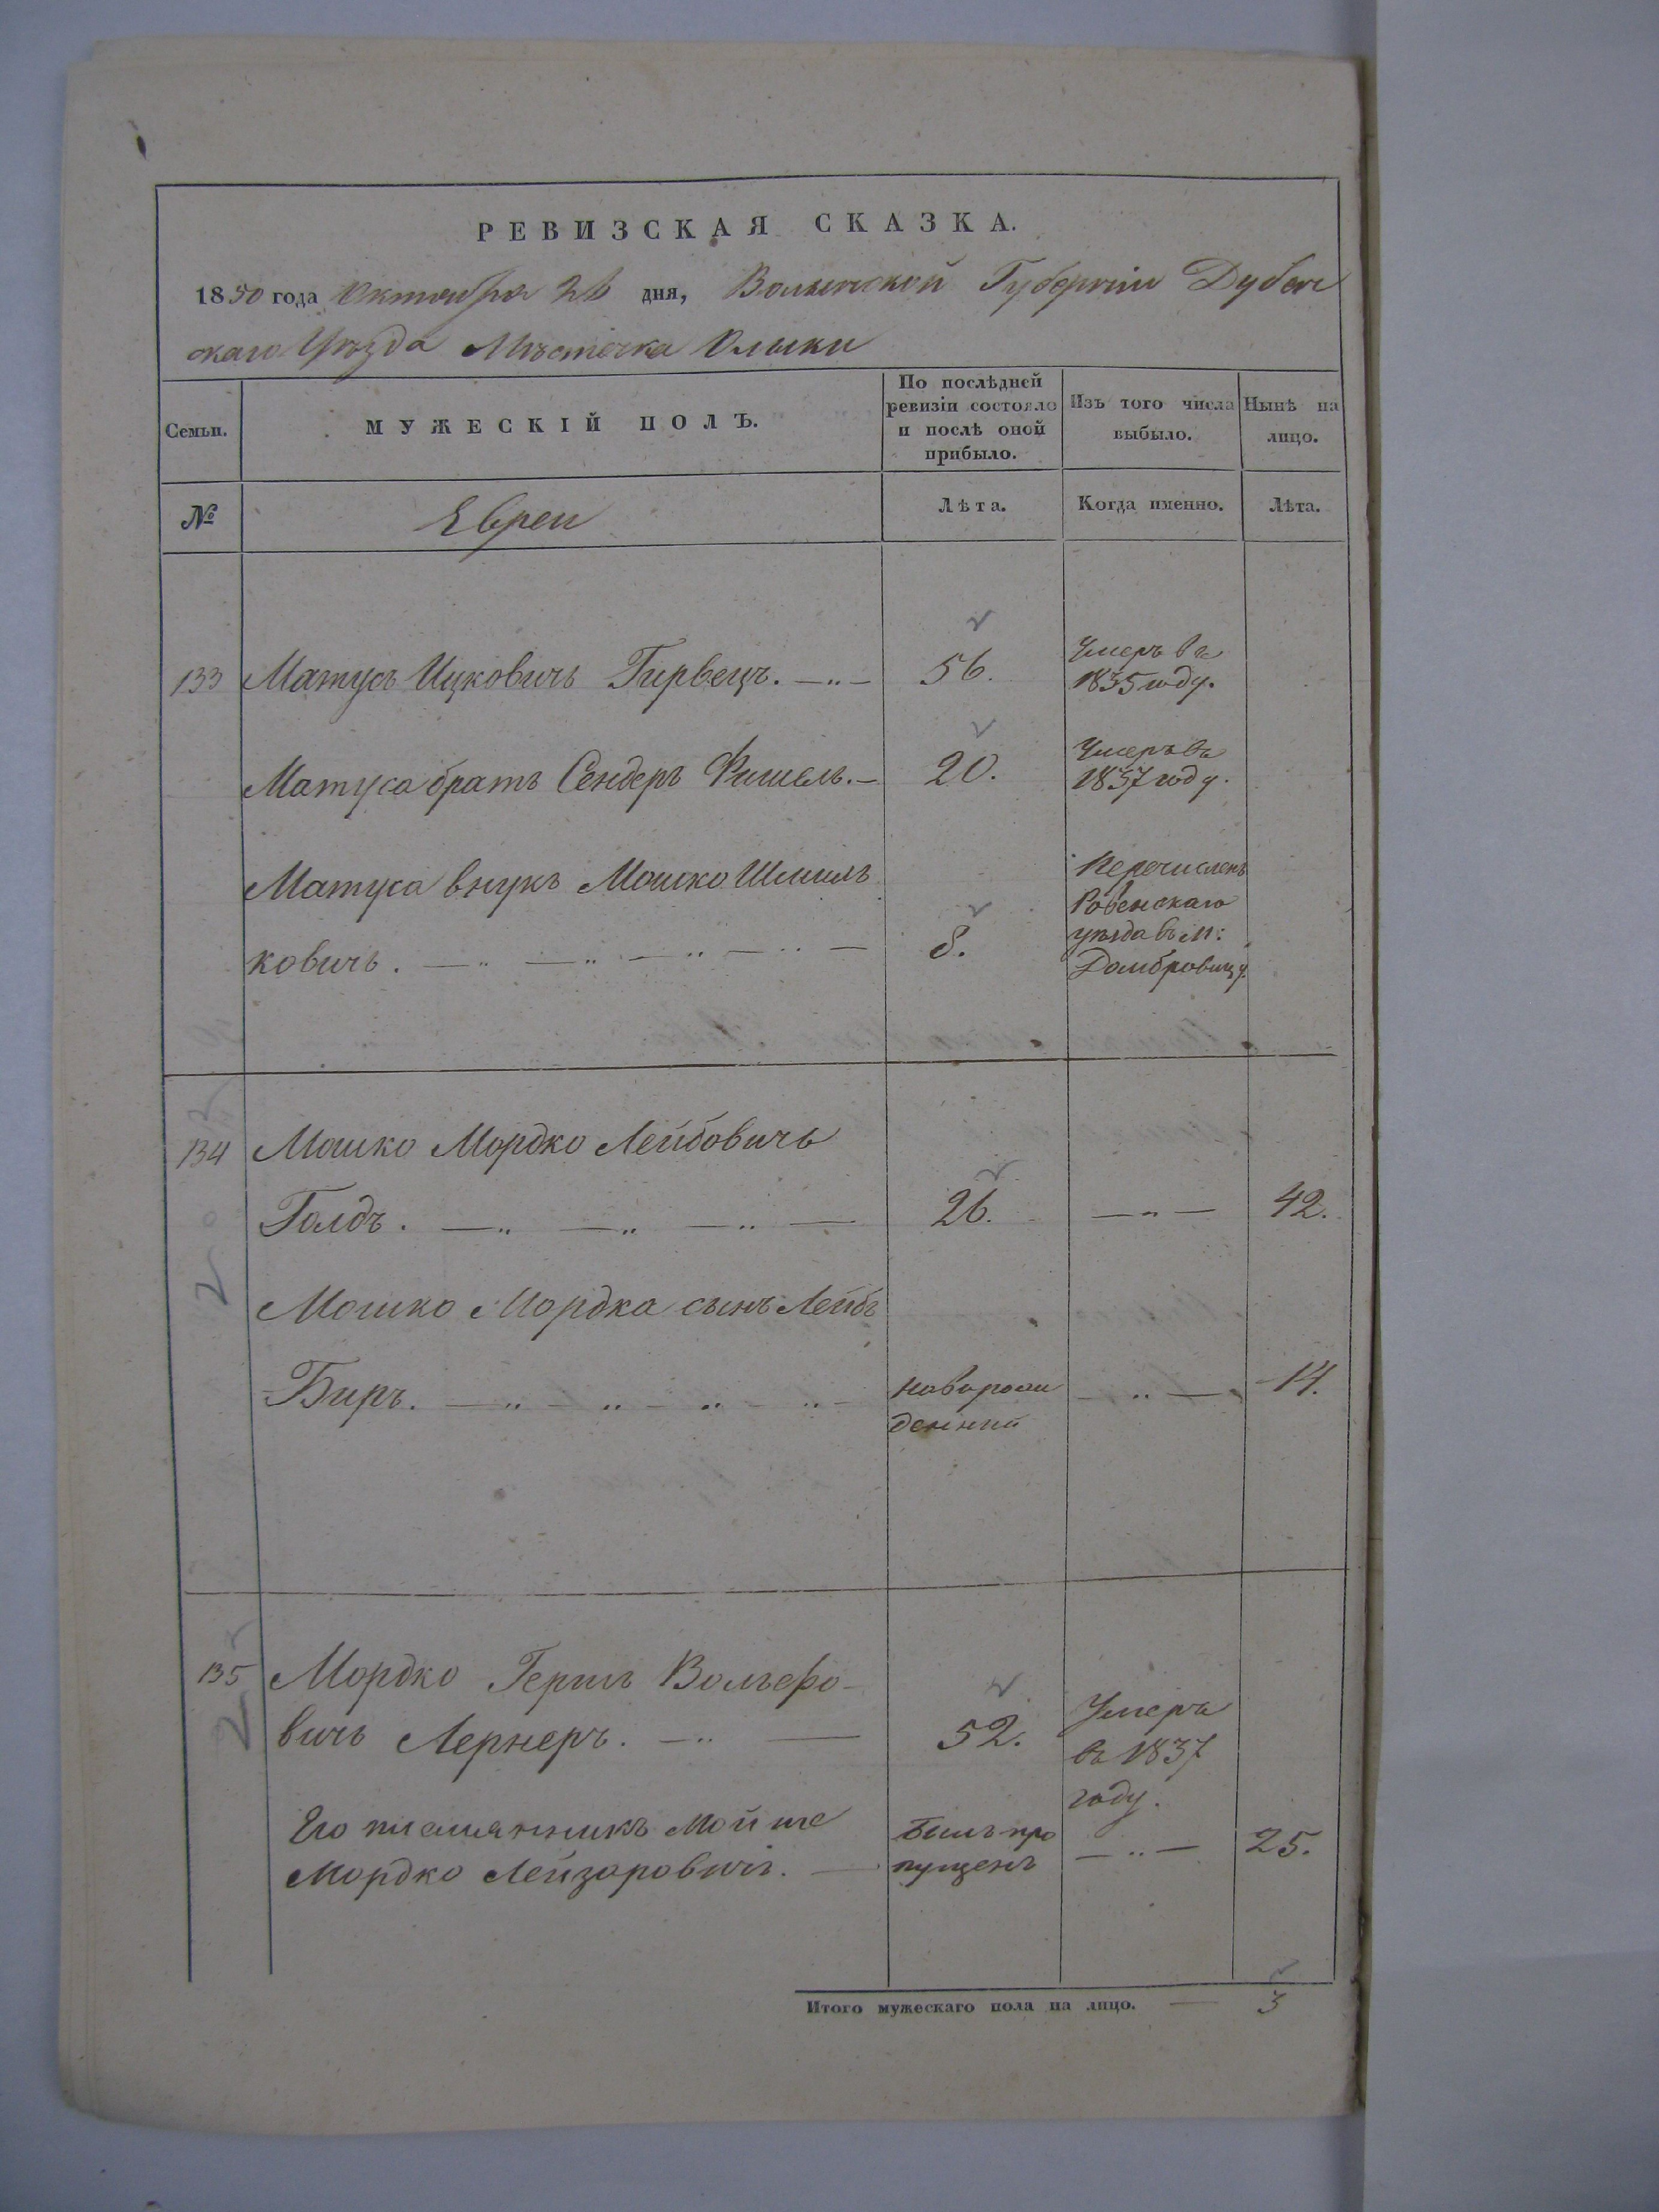 РЕВИЗСКАЯ СКАЗКА.
1850 года Октября 26 дня, Волынской Губерніи Дубен
скаго Уѣзда Мѣстечка Олыки
Семьи.
МУЖЕСКІЙ ПОЛЪ.
По послѣдней
ревизіи состояло
и послѣ оной
прибыло.
Изъ того числа
выбыло.
Нынѣ на
лицо.
№
Евреи
Лѣта.
Когда именно.
Лѣта.
133 Матусъ Ицковичъ Гирвецъ. 56. Умеръ въ
1835 году.
Матуса братъ Сендеръ Фишель. 20. Умеръ въ
1837 году.
Матуса внукъ Мошко Шмиль
ковичъ. 8.
Перечисленъ
Ровенскаго
уѣзда въ м:
Домбровицу.
134 Мошко Мордко Лейбовичъ
Голдъ. 26. 42.
Мошко Мордка сынъ Лейбъ
Биръ. 14.
новорож
денний
135 Мордко Гершъ Вольфо-
вичъ Лернеръ. 52.
Умеръ
въ 1837
году.
Его племянникъ Мойше
Мордко Лейзаровичъ. 25.
Билъ про
пущенъ
Итого мужескаго пола на лицо. 3